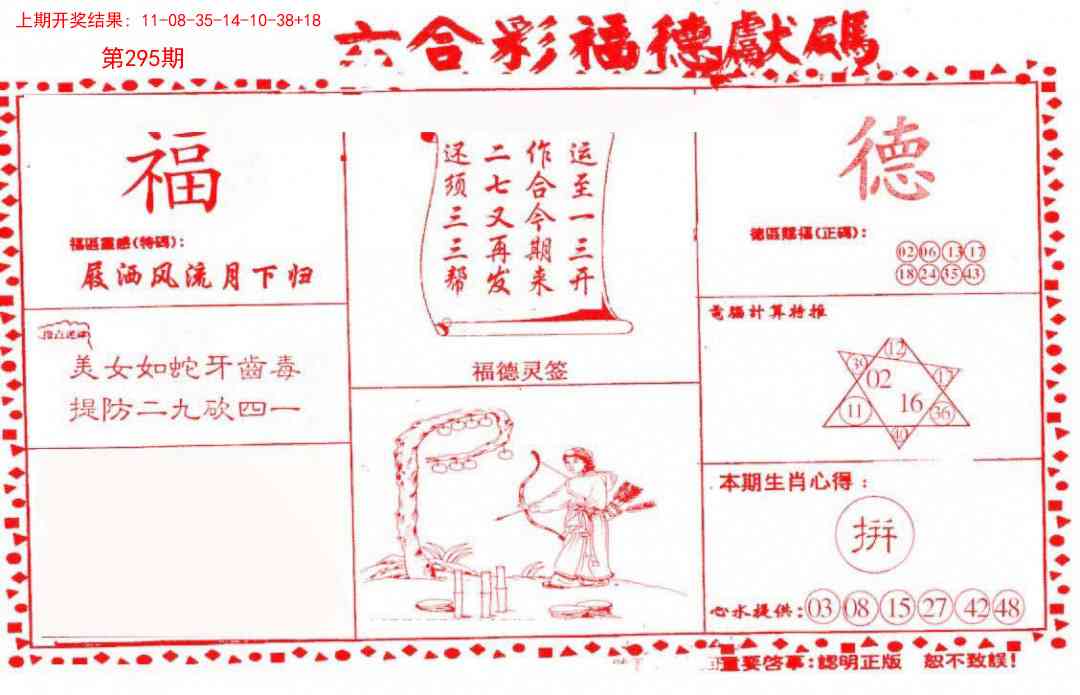 上期开奖结果：11-08-35-14-10-38+18
第295期
六合彩福德獻碼
福
福區靈感(特碼)：
屐洒风流月下归
美女如蛇牙齒毒
提防二九砍四一
运至一三开
作合今期来
二七又再发
还须三三帮
福德灵签
德
德區賜福(正碼)：
02 06 13 17
18 24 35 43
電腦計算特推
12
39 02 17
11 16 36
40
本期生肖心得：
拼
心水提供：03 08 15 27 42 48
重要啓事：認明正版 恕不致誤!